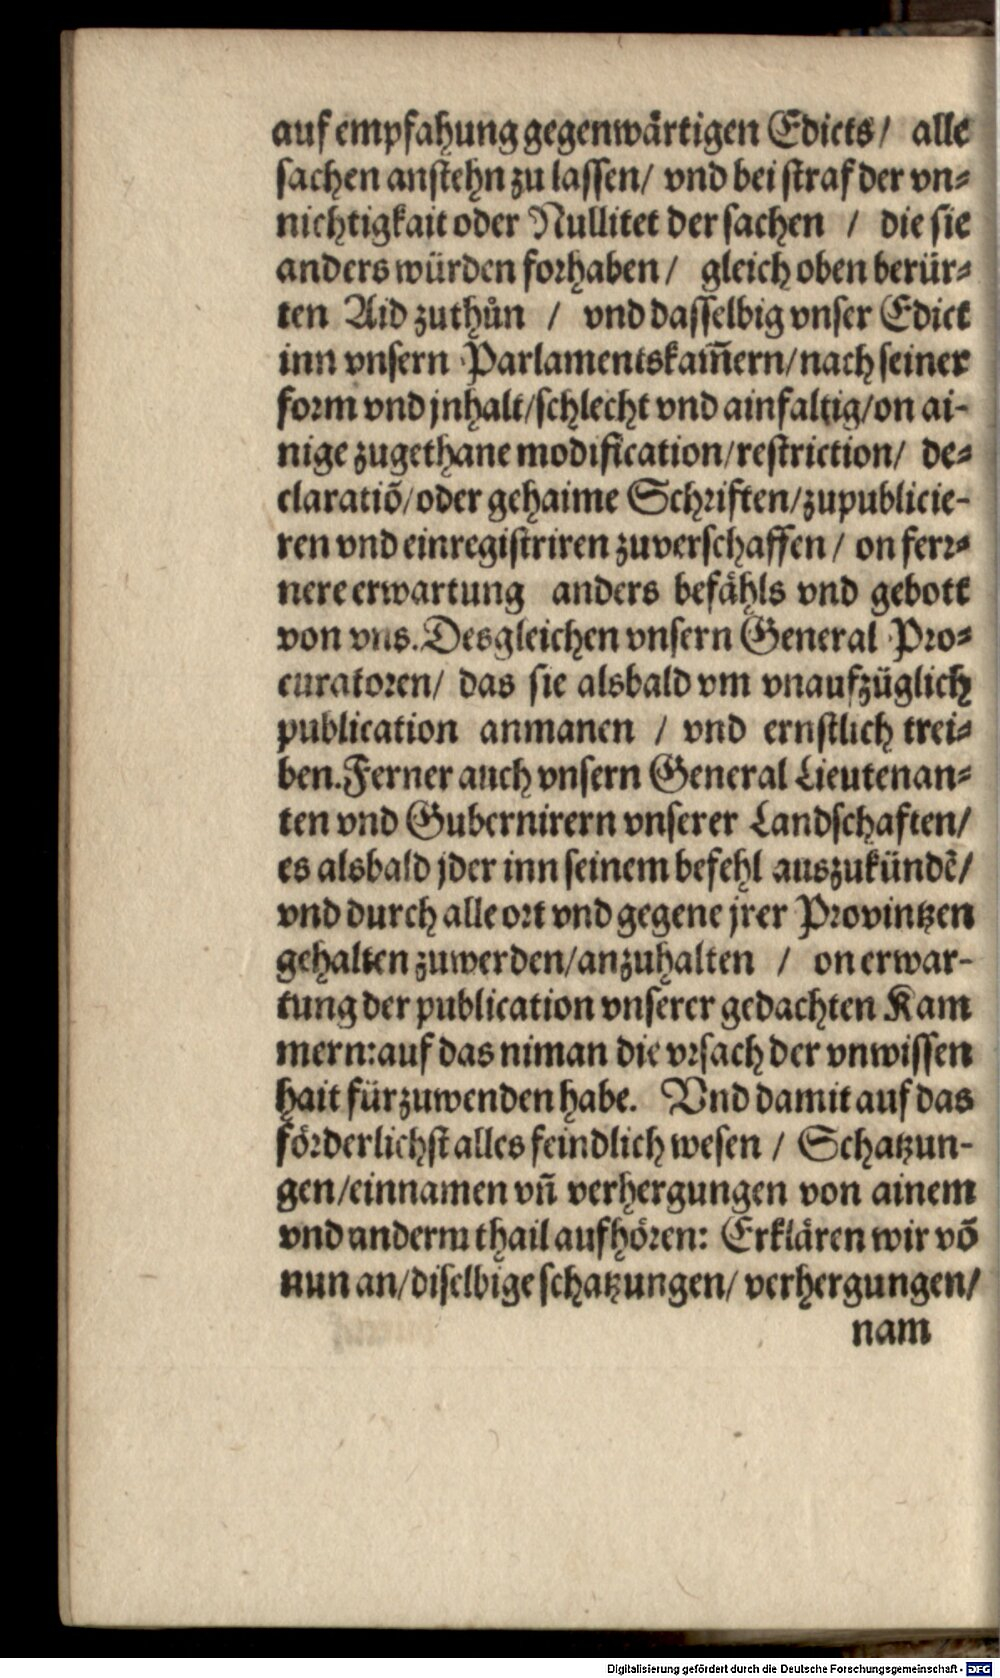 auf empfahung gegenwärtigen Edicts/ alle
sachen anstehn zu lassen/ vnd bei straf der vn⸗
nichtigkait oder Nullitet der sachen / die sie
anders würden forhaben/ gleich oben berür⸗
ten Aid zuthůn / vnd dasselbig vnser Edict
inn vnsern Parlamentskam̄ern/nach seiner
form vnd jnhalt/schlecht vnd ainfaltig/on ai-
nige zugethane modification/restriction/ de⸗
claratiō/oder gehaime Schriften/zupublicie-
ren vnd einregistriren zuverschaffen/ on ferr⸗
nere erwartung anders befåhls vnd gebott
von vns. Desgleichen vnsern General Pro⸗
curatoren/ das sie alsbald vm vnaufzüglich
publication anmanen / vnd ernstlich trei⸗
ben. Ferner auch vnsern General Lieutenan⸗
ten vnd Gubernirern vnserer Landschaften/
es alsbald jder inn seinem befehl auszukündē/
vnd durch alle ort vnd gegene jrer Provintzen
gehalten zuwerden/anzuhalten / on erwar-
tung der publication vnserer gedachten Kam
mern: auf das niman die vrsach der vnwissen
hait fürzuwenden habe. Vnd damit auf das
förderlichst alles feindlich wesen / Schatzun-
gen/einnamen vñ verhergungen von ainem
vnd anderm thail aufhören: Erklären wir vō
nun an/diselbige schatzungen/ verhergungen/
nam
Digitalisierung gefördert durch die Deutsche Forschungsgemeinschaft - DFG